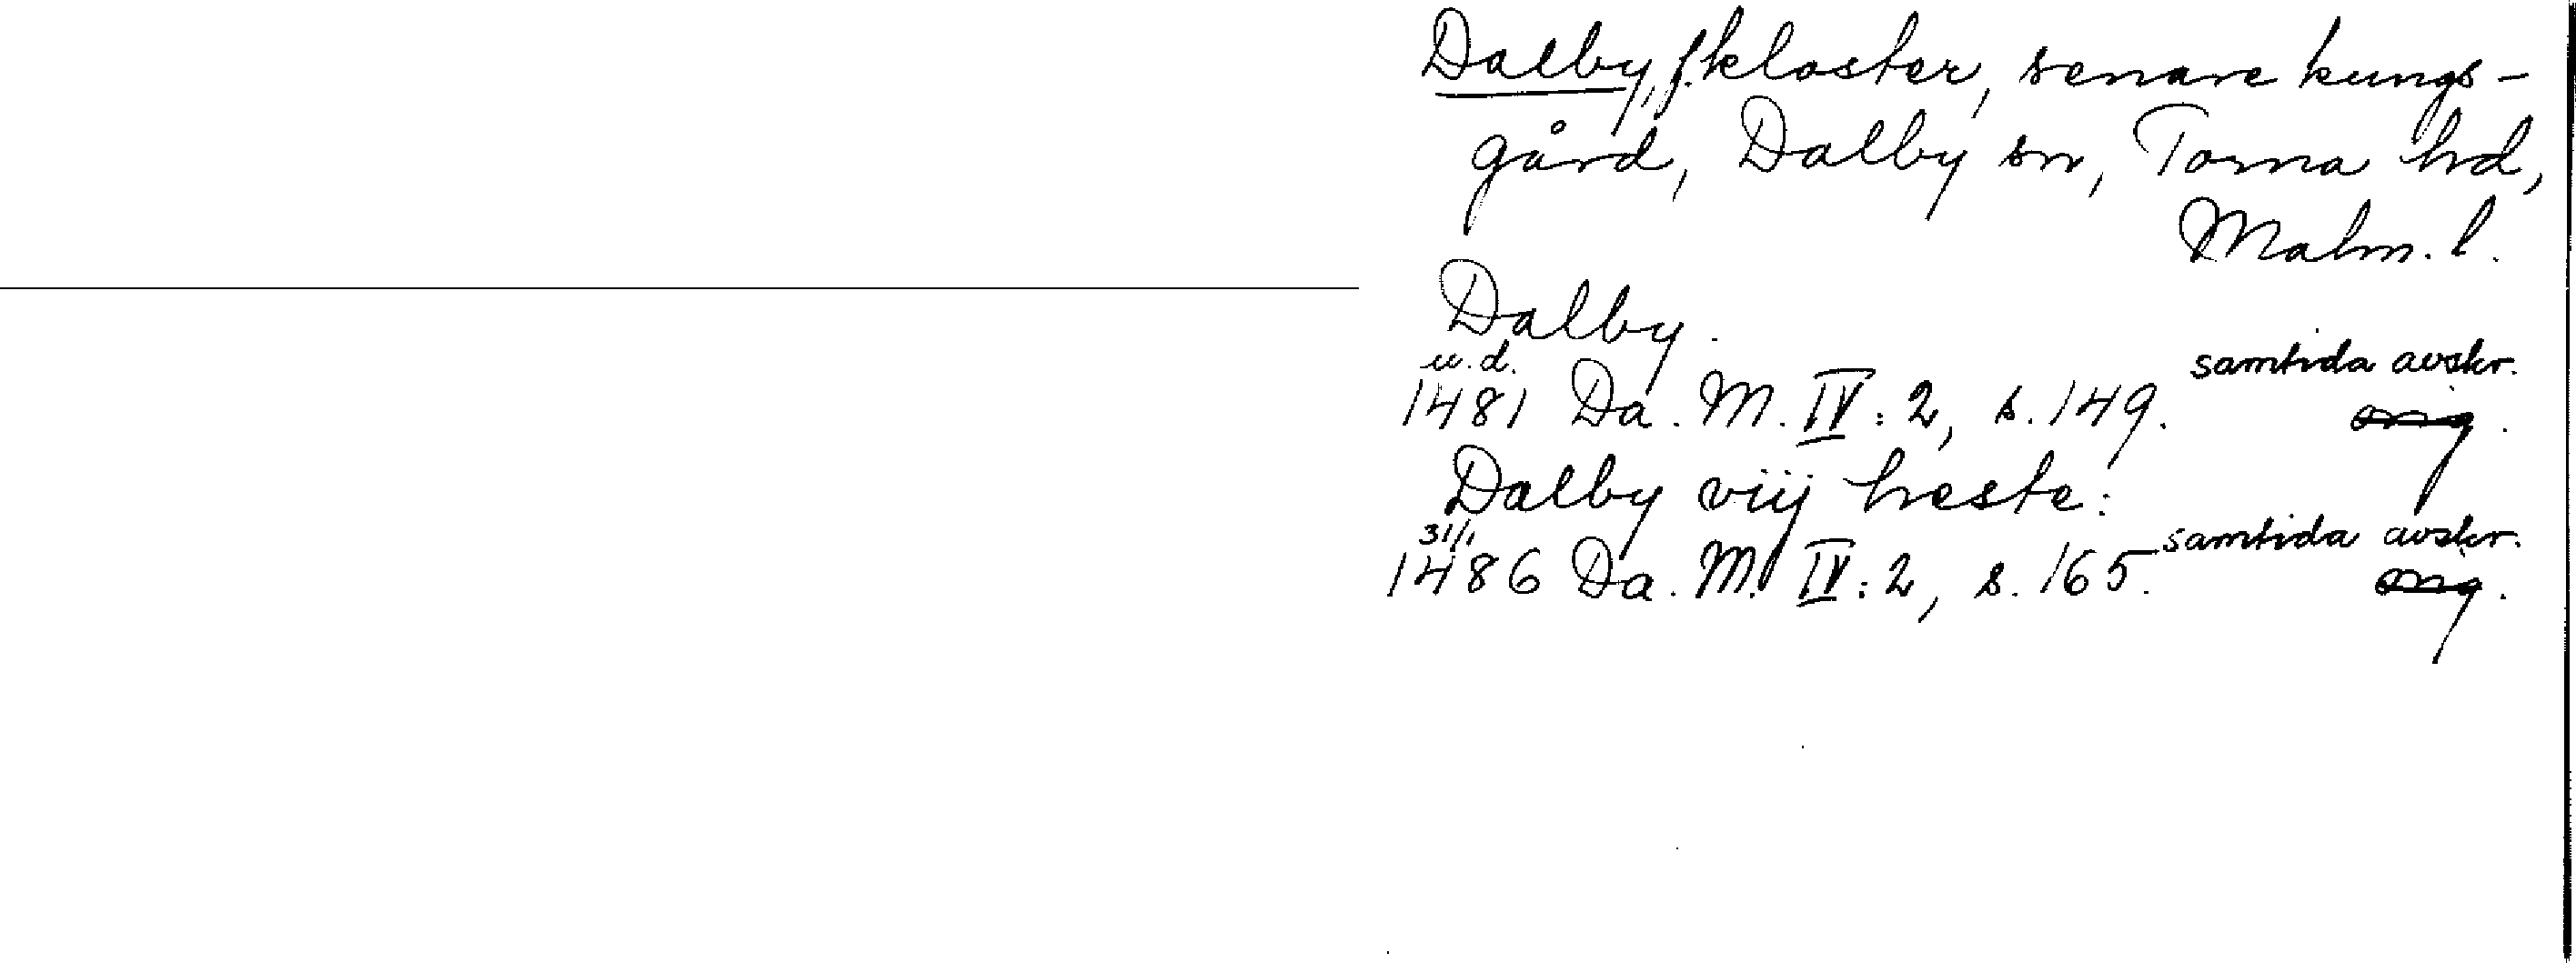 Dalby, f. kloster, senare kungs-
gård, Dalby sn, Torna hd,
Malm. l.
Dalby.
u. d. samtida avskr.
1481 Da. M. IV: 2, s. 149. orig.
Dalby viij heste:
31/1 samtida avskr.
1486 Da. M. IV: 2, s. 165. orig.